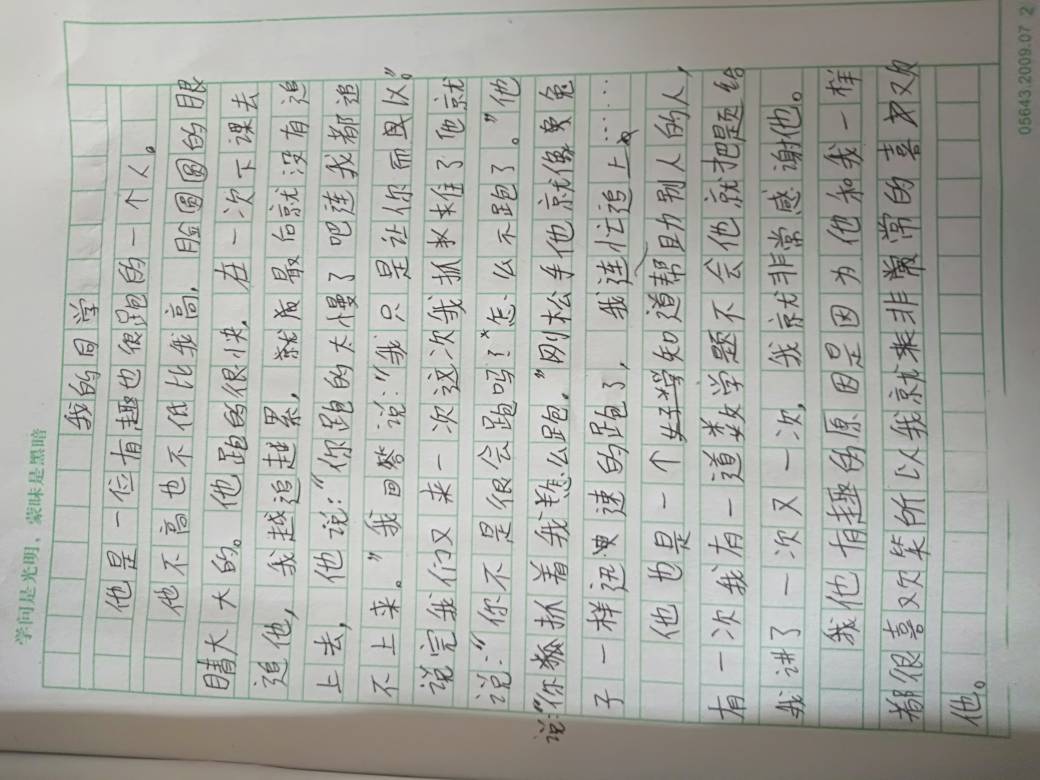 学问是光明，蒙昧是黑暗
我的同学
他是一位有趣也很跑的一个人。
他不高也不低比我高，脸圆圆的眼
睛大大的。他跑的很快，在一次下课去
追他，我越追越累，就最后就没有追
上去，他说：“你跑的太慢了吧连我都追
不上来。”我回答说：“我只是让你而已”。
说完我们又来一次这次我抓住了他就
说：“你不是很会跑吗？怎么不跑了。”他
说：“你抓着我怎么跑。”刚松手他就像兔
子一样迅速的跑了，我连忙追上……
他也是一个知道帮助别人的人，
有一次我有一道数学题不会他就把题给
我讲了一次又一次，我就非常感谢他。
我他有趣的原因是因为他和我一样
都很喜欢笑所以我就非常的喜欢
他。
05643.2009.07 2